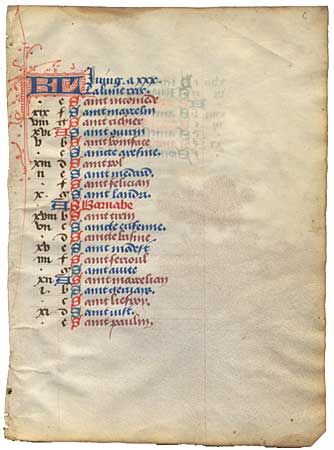 KL Juing a xxx.
La lune xxix.
. e Saint nicomede
xix f Saint marcelin
viii g Saint
xvi A Saint quirin
v b Saint boniface
. c Saint
xiii d Saint pol
ii e Saint medard
. f Saint felician
x g Saint landri
. A Barnabe
xviii b Saint cirin
vii c Sainte eufeme
. d Sainte
xv e Saint modest
iiii f Saint ferioul
. g Saint auite
xii A Saint marcelian
i b Saint geruais
. c Saint
xi d Saint
. e Saint paulin.